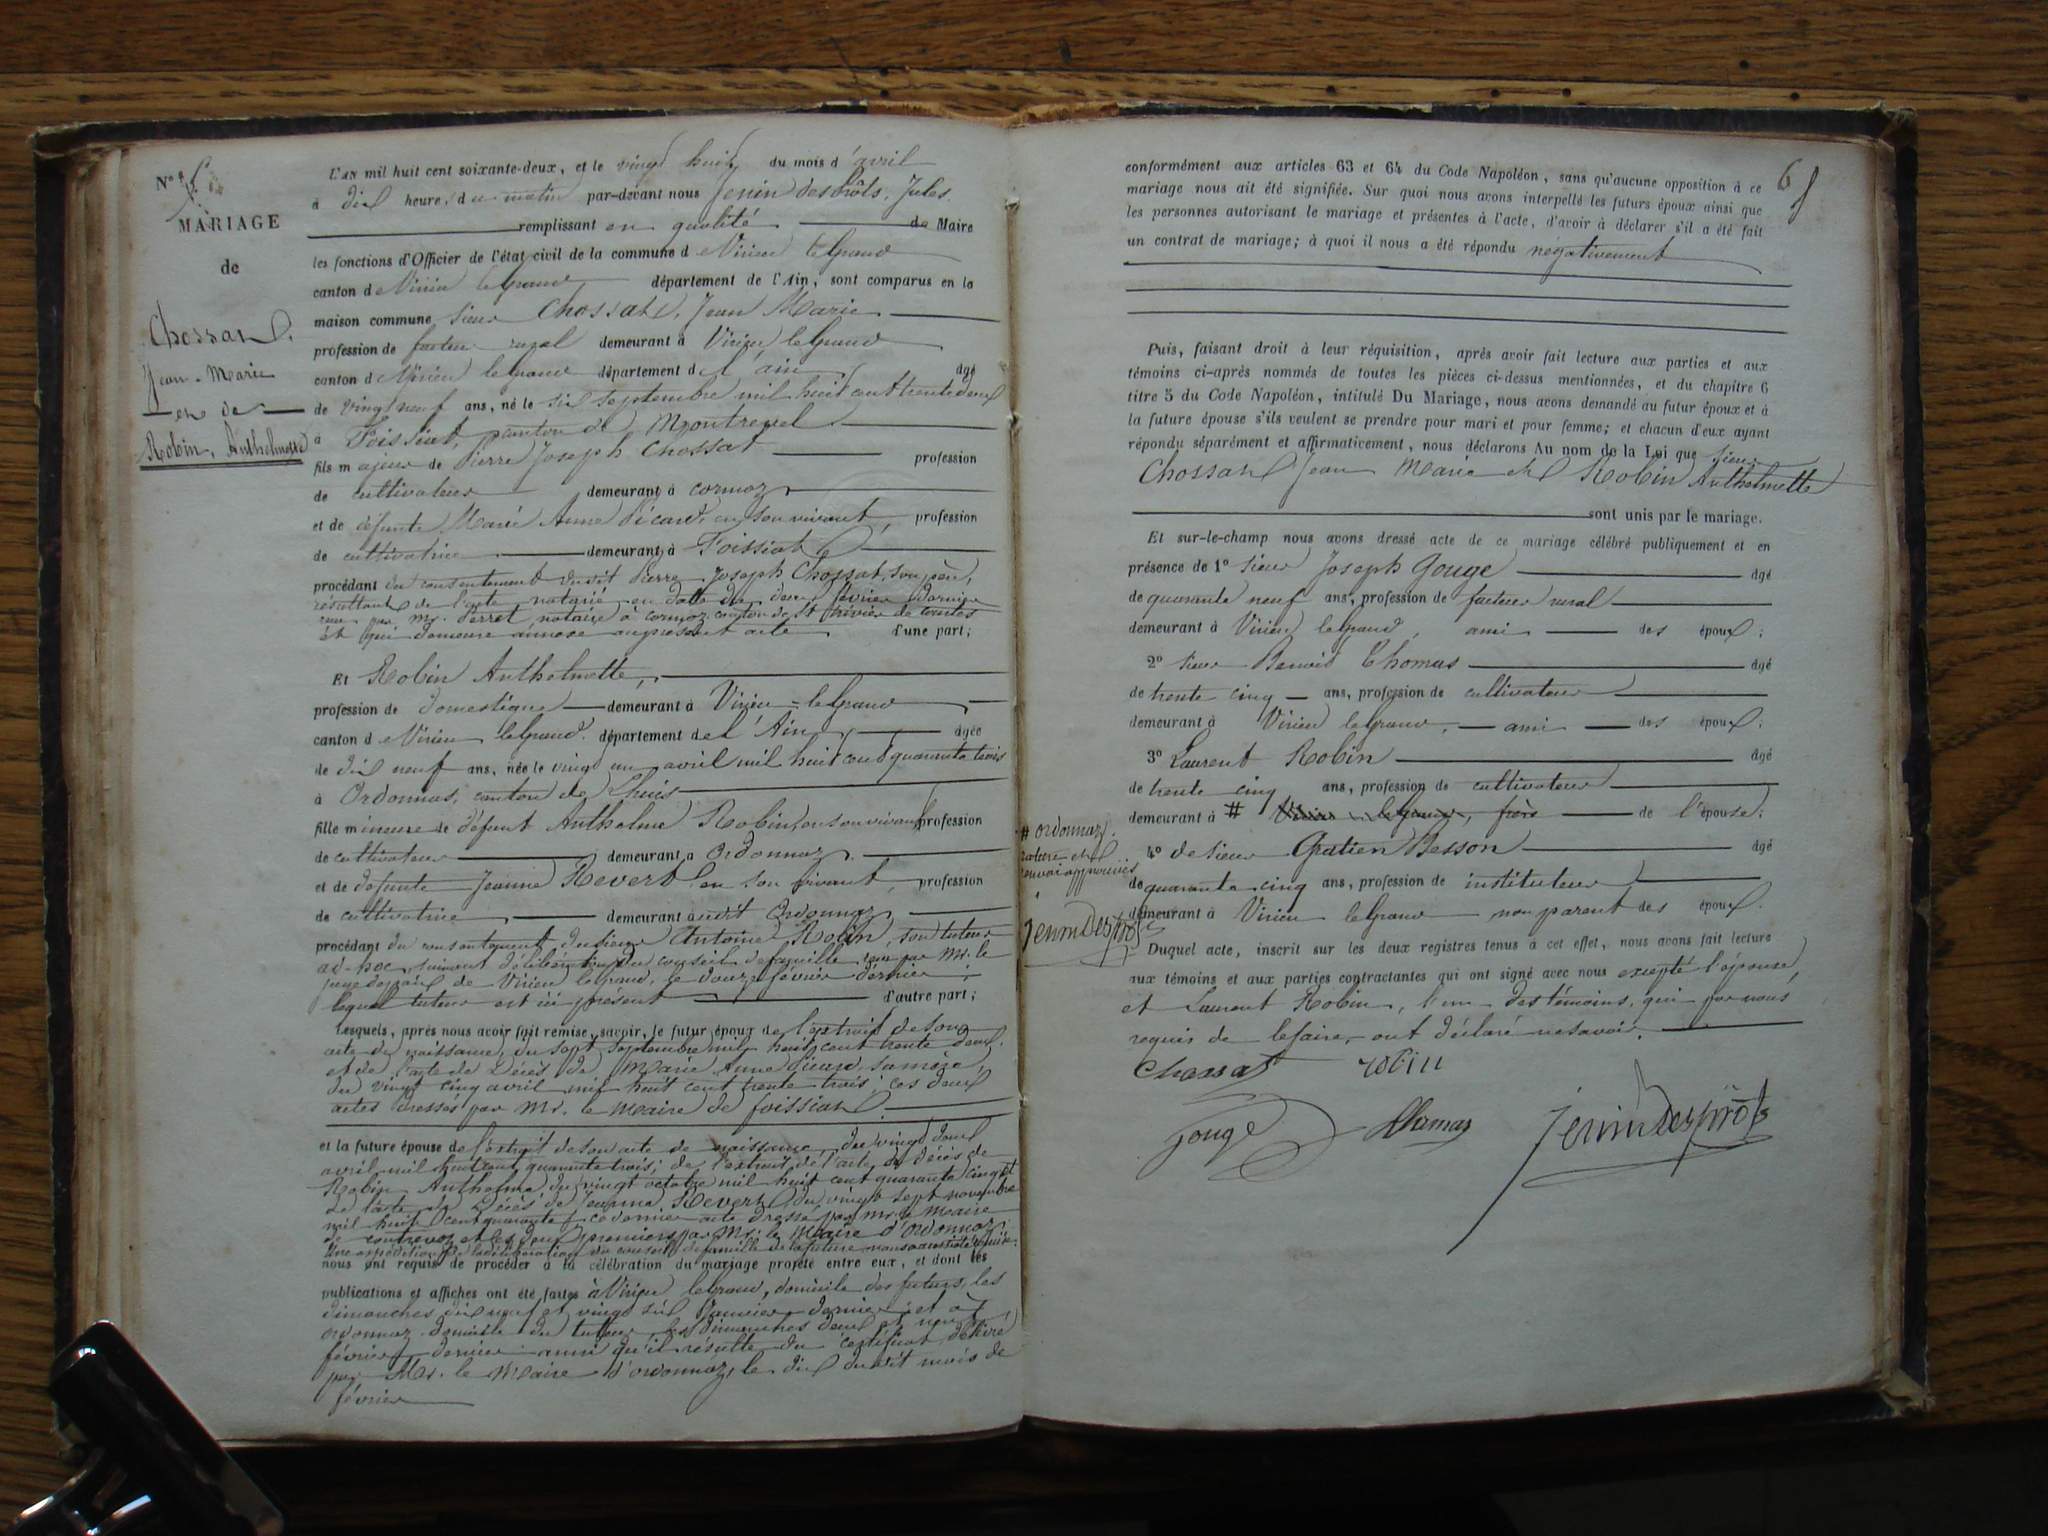 N°
MARIAGE
de
Chossat
Jean-Marie
et de
Robin, Anthelmette
L'AN mil huit cent soixante-deux, et le vingt huit du mois d'avril
à dix heure, du matin par-devant nous Jenin desprôts, Jules,
remplissant en qualité de Maire
les fonctions d'Officier de l'état civil de la commune de Virieu le Grand
canton de Virieu le Grand département de l'Ain, sont comparus en la
maison commune Sieur Chossat, Jean Marie
profession de facteur rural demeurant à Virieu le Grand
canton de Virieu le Grand département de l'ain âgé
de vingt neuf ans, né le six septembre mil huit cent trente deux
à Foissiat, canton de Montrevel
fils majeur de Pierre Joseph Chossat profession
de cultivateur demeurant à cormoz
et de défunte Marie Anne Picard, en son vivant, profession
de cultivatrice demeurant à Foissiat
procédant du consentement dudit Pierre Joseph Chossat, son père,
résultant de l'acte notarié en date du deux février dernier
reçu par Mr. Perret notaire à cormoz canton de St trivier de courtes
et qui demeure annexé au présent acte d'une part;
Et Robin Anthelmette,
profession de domestique demeurant à Virieu-le Grand
canton de Virieu le Grand département de l'Ain âgée
de dix neuf ans, née le vingt un avril mil huit cent quarante trois
à Ordonnas, canton de Lhuis
fille mineure de défunt Anthelme Robin, en son vivant profession
de cultivateur demeurant à Ordonnaz
et de défunte Jeanne Revert en son vivant, profession
de cultivatrice demeurant à udit Ordonnaz
procédant du consentement du sieur Antoine Robin, son tuteur
ad-hoc, suivant délibération du conseil de famille reçu par Mr. le
juge de paix de Virieu le Grand, le douze février dernier
lequel tuteur est ici présent d'autre part;
Lesquels, après nous avoir fait remise, savoir, le futur époux de l'extrait de son
acte de naissance, du sept septembre mil huit cent trente deux
et de l'acte de décès de Marie Anne Picard, sa mère,
du vingt cinq avril mil huit cent trente trois ces deux
actes dressés par Mr. le Maire de foissiat
et la future épouse de l'extrait de son acte de naissance, du vingt deux
avril mil huit cent quarante trois; de l'extrait de l'acte de décès de
Robin Anthelme du vingt octobre mil huit cent quarante cinq et
de l'acte de décès de Jeanne Revert du vingt sept novembre
mil huit cent quarante ce dernier acte dressé par Mr. le Maire
de contrevoz et les deux premiers par Mr. le Maire d'Ordonnaz
Une expédition de la délibération du conseil de famille de la future
nous ont requis de procéder à la célébration du mariage projeté entre eux, et dont les
publications et affiches ont été faites à Virieu le Grand, domicile des futurs, les
dimanches dix neuf et vingt six Janvier dernier et à
ordonnaz domicile du tuteur les dimanches deux et neuf
février dernier ainsi qu'il résulte du certificat délivré
par Mr. le Maire d'ordonnaz, le dix dudit mois de
février
6
conformément aux articles 63 et 64 du Code Napoléon, sans qu'aucune opposition à ce
mariage nous ait été signifiée. Sur quoi nous avons interpellé les futurs époux ainsi que
les personnes autorisant le mariage et présentes à l'acte, d'avoir à déclarer s'il a été fait
un contrat de mariage; à quoi il nous a été répondu négativement
Puis, faisant droit à leur réquisition, après avoir fait lecture aux parties et aux
témoins ci-après nommés de toutes les pièces ci-dessus mentionnées, et du chapitre 6
titre 5 du Code Napoléon, intitulé Du Mariage, nous avons demandé au futur époux et à
la future épouse s'ils veulent se prendre pour mari et pour femme; et chacun d'eux ayant
répondu séparément et affirmativement, nous déclarons Au nom de la Loi que Sieur
Chossat Jean Marie et Robin Anthelmette
sont unis par le mariage.
Et sur-le-champ nous avons dressé acte de ce mariage célébré publiquement et en
présence de 1° Sieur Joseph Gouge âgé
de quarante neuf ans, profession de facteur rural
demeurant à Virieu le Grand, ami des époux;
2° Sieur Benoit Thomas âgé
de trente cinq ans, profession de cultivateur
demeurant à Virieu le Grand, ami des époux;
3° Laurent Robin âgé
de trente cinq ans, profession de cultivateur
demeurant à # Virieu le Grand, frère de l'épouse;
# ordonnaz.
rature et
renvoi approuvés
Jenin Desprôts
4° de sieur Gratien Besson âgé
de quarante cinq ans, profession de instituteur
demeurant à Virieu le Grand non parent des époux.
Duquel acte, inscrit sur les deux registres tenus à cet effet, nous avons fait lecture
aux témoins et aux parties contractantes qui ont signé avec nous excepté l'épouse,
et Laurent Robin, l'un des témoins, qui par nous
requis de le faire, ont déclaré ne savoir.
Chossat robin
Gouge Thomas Jenin Desprôts